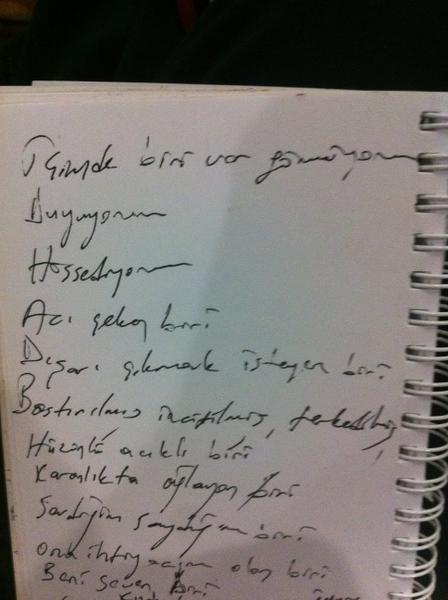 İçimde biri var görmüyorum
Duyuyorum
Hissediyorum
Acı çeken biri
Dışarı çıkmak isteyen biri
Bastırılmış incitilmiş, terkedilmiş,
Hüzünlü acıklı biri
Karanlıkta ağlayan biri
biri
Ona ihtiyacım olan biri
Beni seven biri